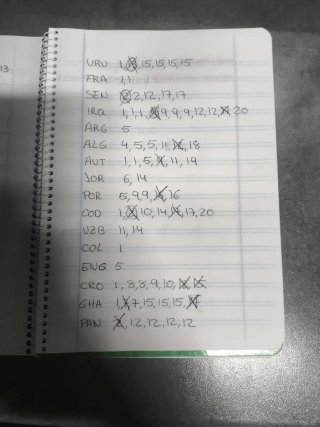 13
URU 1, 15, 15, 15, 15
FRA 1, 1
SEN 2, 12, 17, 17
IRQ 1, 1, 1, 9, 9, 9, 12, 12, 20
ARG 5
ALG 4, 5, 5, 11, 18
AUT 1, 1, 5, 11, 19
JOR 6, 14
POR 5, 9, 9, 16
COD 1, 10, 14, 17, 20
UZB 11, 14
COL 1
ENG 5
CRO 1, 8, 8, 9, 10
GHA 1, 7, 15, 15, 15
PAN 12, 12, 12, 12